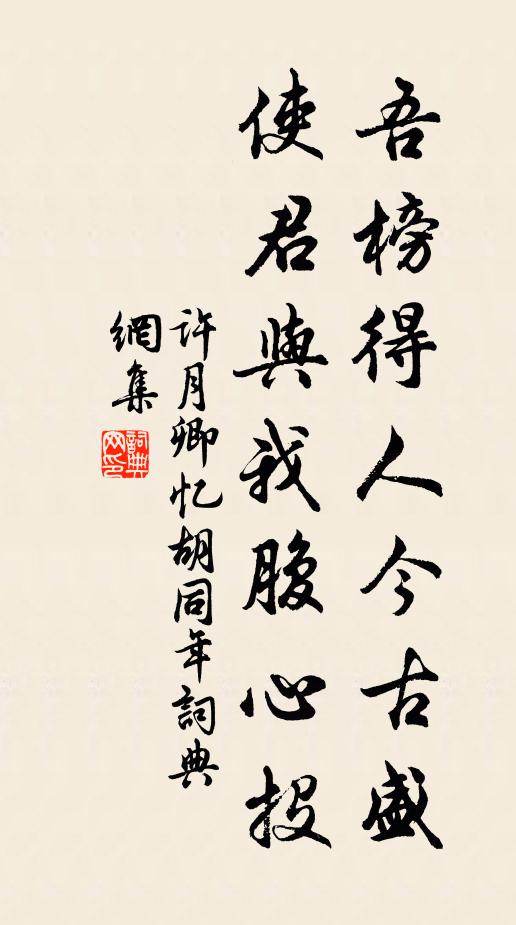 吾榜得人今古盛
使君與我腹心投
許月卿忆胡同年詞典
網集
詞典網印